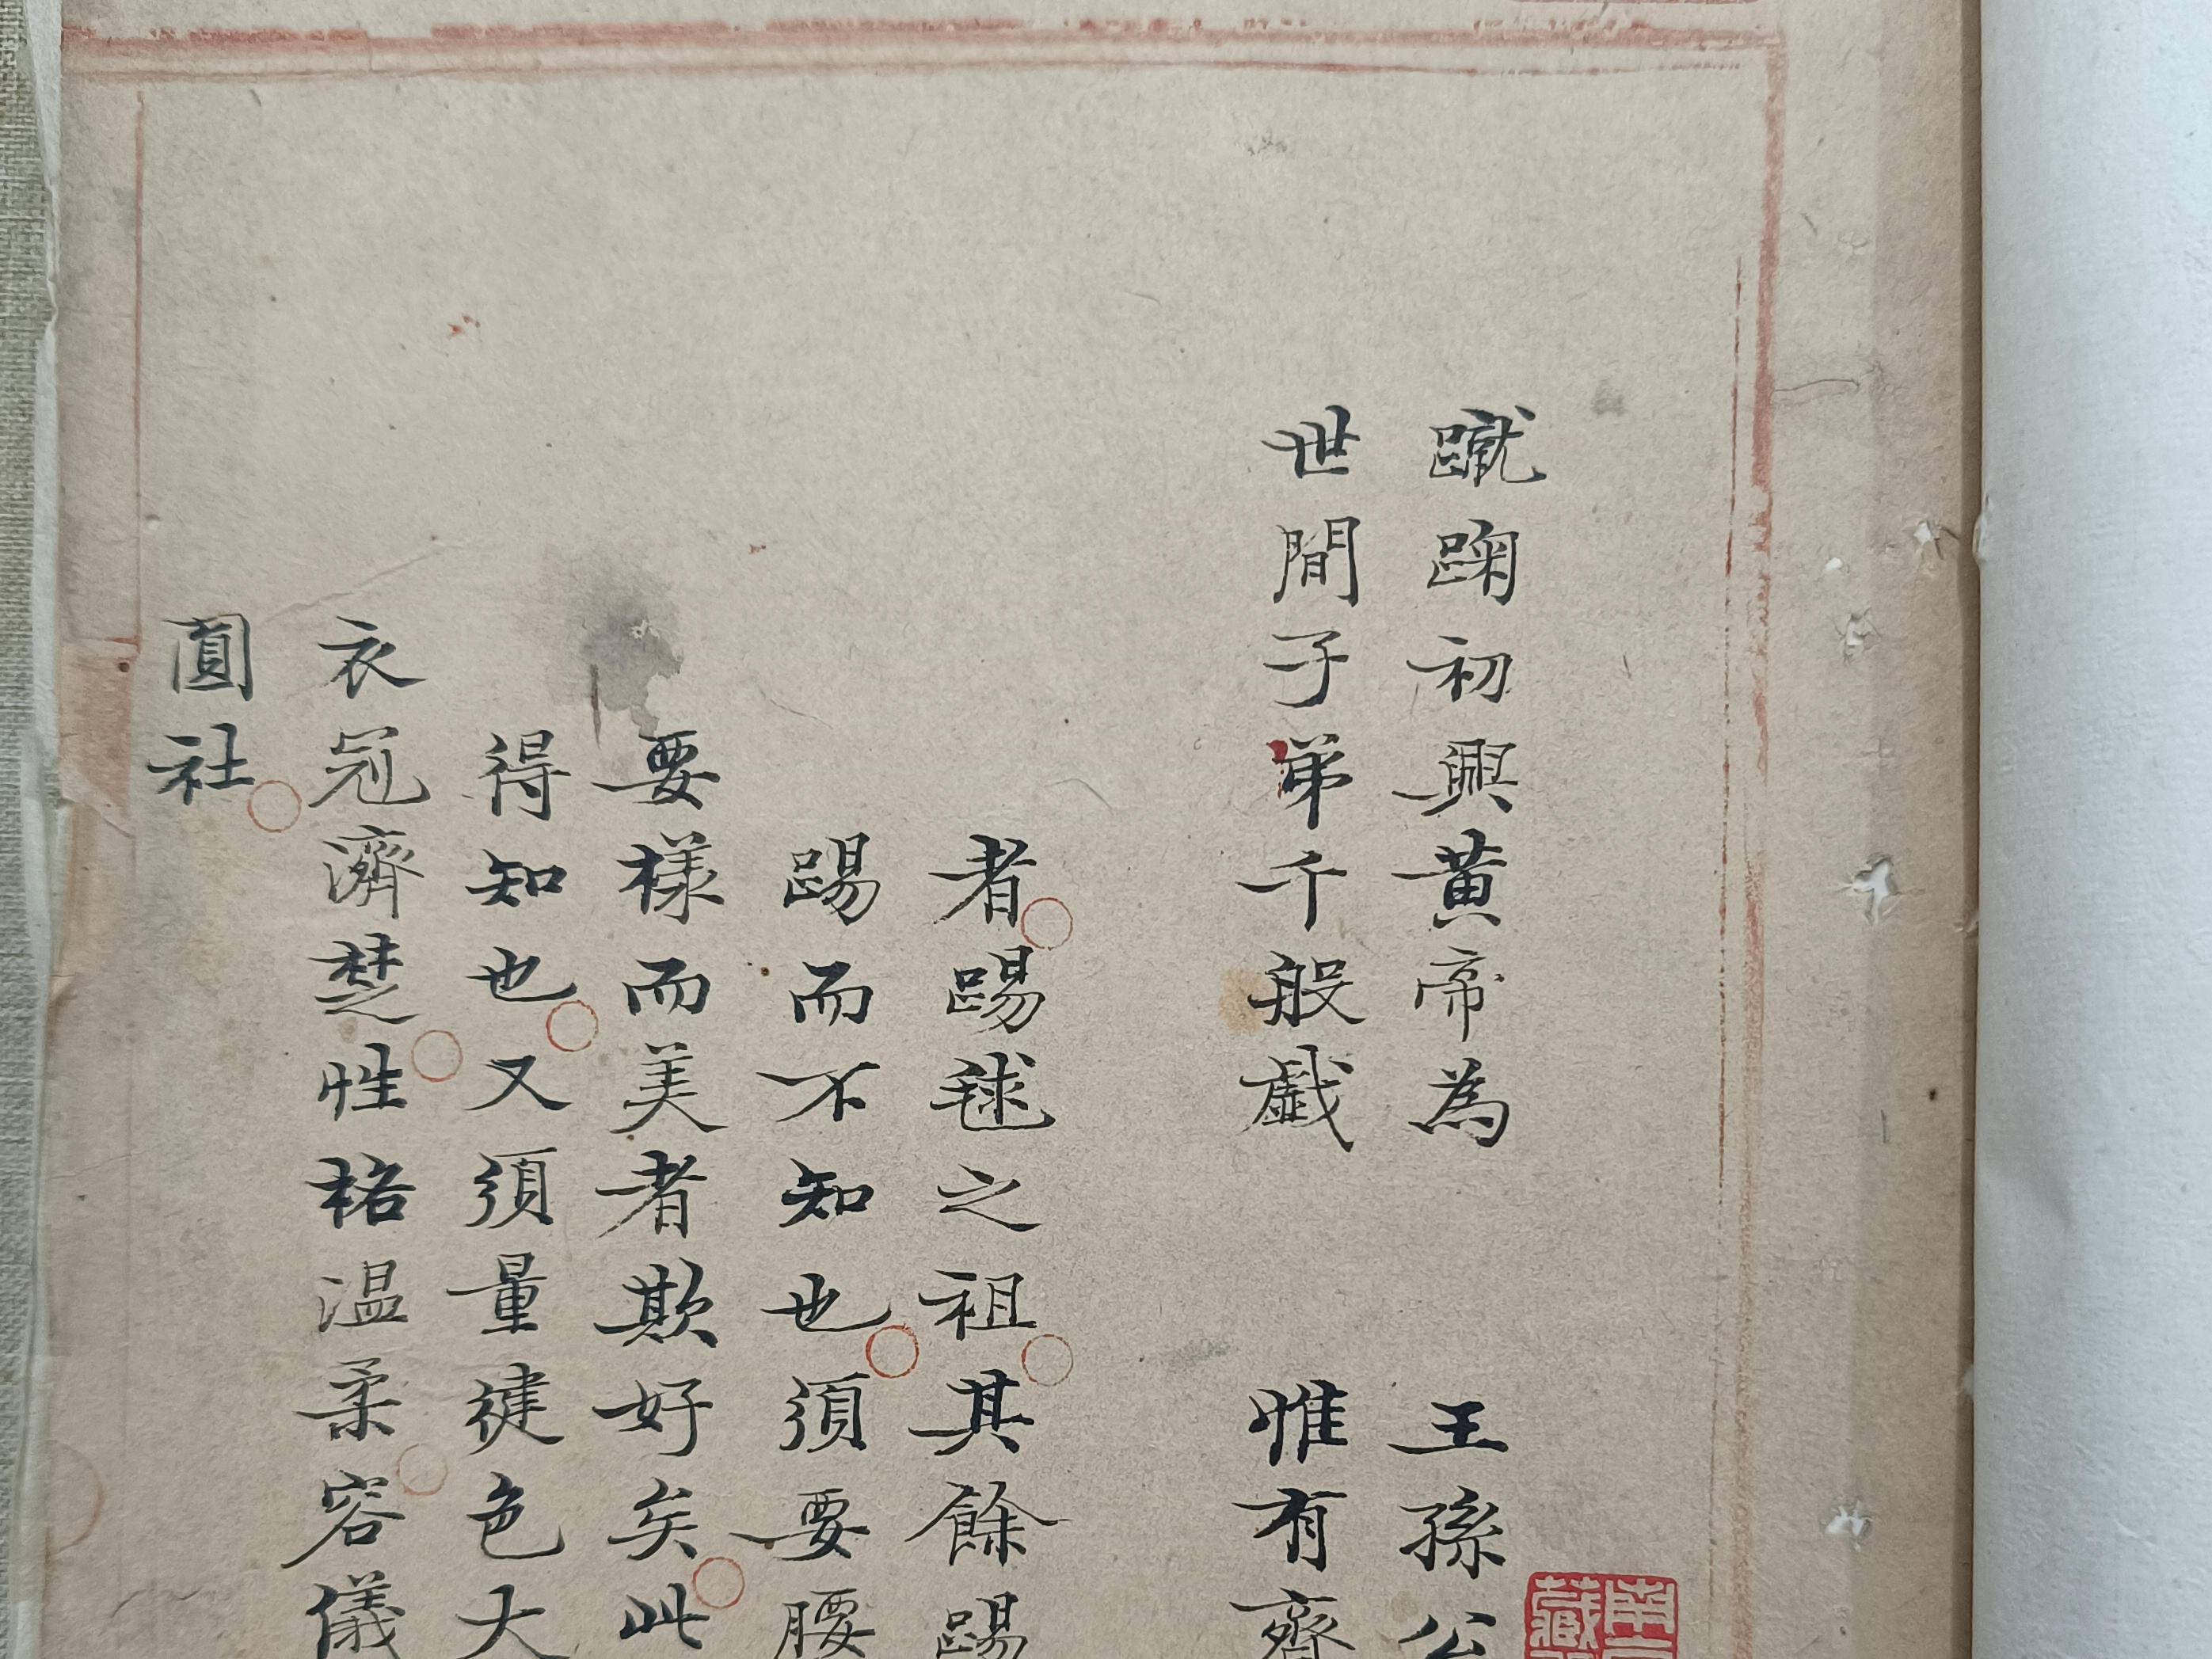 蹴踘初興黃帝為　王孫公
世間子弟千般戱　惟有齊
者踢毬之祖其餘踢
踢而不知也須要腰
要樣而美者欺好矣此
得知也又須量健色大
衣冠濟楚性格温柔容儀
圓社